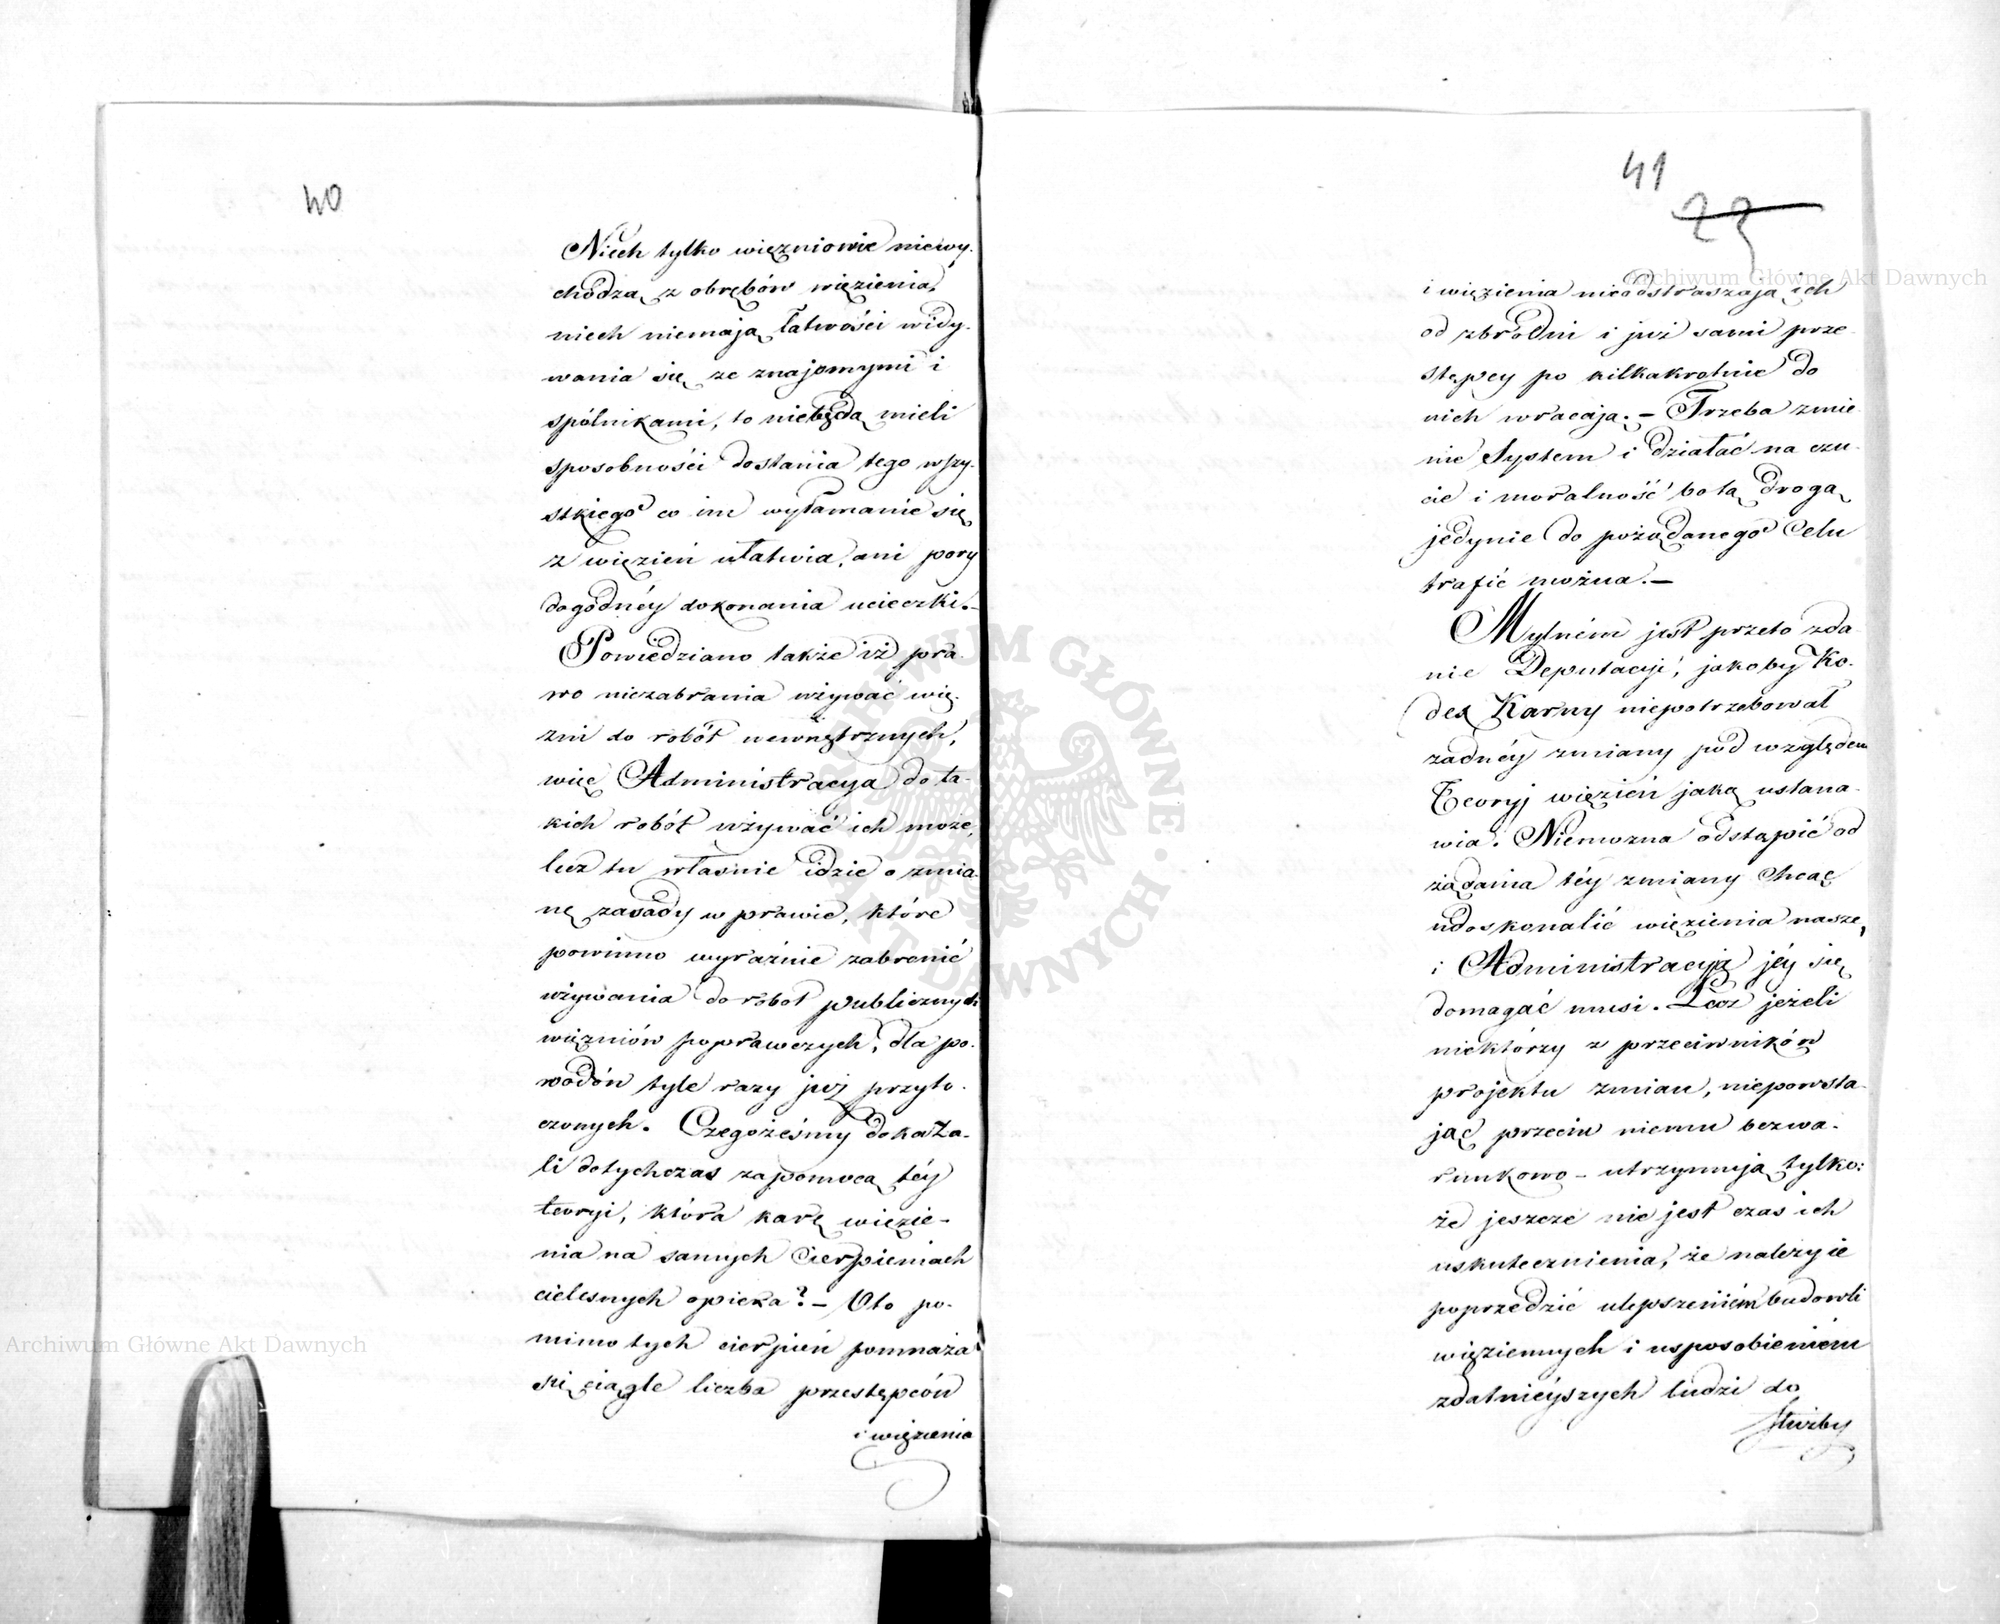 40
Niech tylko więzniowie niewy-
chodzą z obrębów więzienia,
niech niemają łatwości widy-
wania się ze znajomymi i
spólnikami, to niebędą mieli
sposobności dostania tego wszy-
stkiego co im wyłamanie się
z więzień ułatwia, ani pory
dogodnéy dokonania ucieczki.–
Powiedziano także iż pra-
wo niezabrania używać wię-
zni do robót wewnętrznych,
więc Administracya do ta-
kich robót używać ich może,
lecz tu własnie idzie o zmia-
nę zasady w prawie, które
powinno wyraźnie zabronić
używania do robot publicznych
więzniów poprawczych, dla po-
wodów tyle razy już przyto-
czonych. Czegożeśmy dokaza-
li dotychczas za pomocą téy
teoryi, która karę więzie-
nia na samych Cierpieniach
cielesnych opiera? – Oto po-
mimo tych cierpień pomnaża
się ciągle liczba przestępców
i więzienia
41
23
i więzienia nieodstraszają ich
od zbrodni i już sami prze-
stępcy po kilkakrotnie do
nich wracają. – Trzeba zmie-
nić System i działać na czu-
cie i moralność bo tą drogą
jedynie do pożądanego Celu
trafić można. –
Mylném jest przeto zda-
nie Deputacyi, jakoby Ko-
dex Karny niepotrzebował
żadnéy zmiany pod względem
Teoryj więzień jaką ustana-
wia. Niemożna odstąpić od
żądania téy zmiany Chcąc
udoskonalić więzienia nasze,
i Administracyja jéy się
domagać musi. Lecz jeżeli
niektórzy z przeciwników
projektu zmian, niepowsta-
jąc przeciw niemu bezwa-
runkowo – utrzymują tylko:
że jeszcze nie jest czas ich
uskutecznienia, że należy ie
poprzedzić ulepszeniém budowli
więziennych i usposobieniém
zdatnieyszych ludzi do
służby
Archiwum Główne Akt Dawnych
Archiwum Główne Akt Dawnych
ARCHIWUM GŁÓWNE AKT DAWNYCH